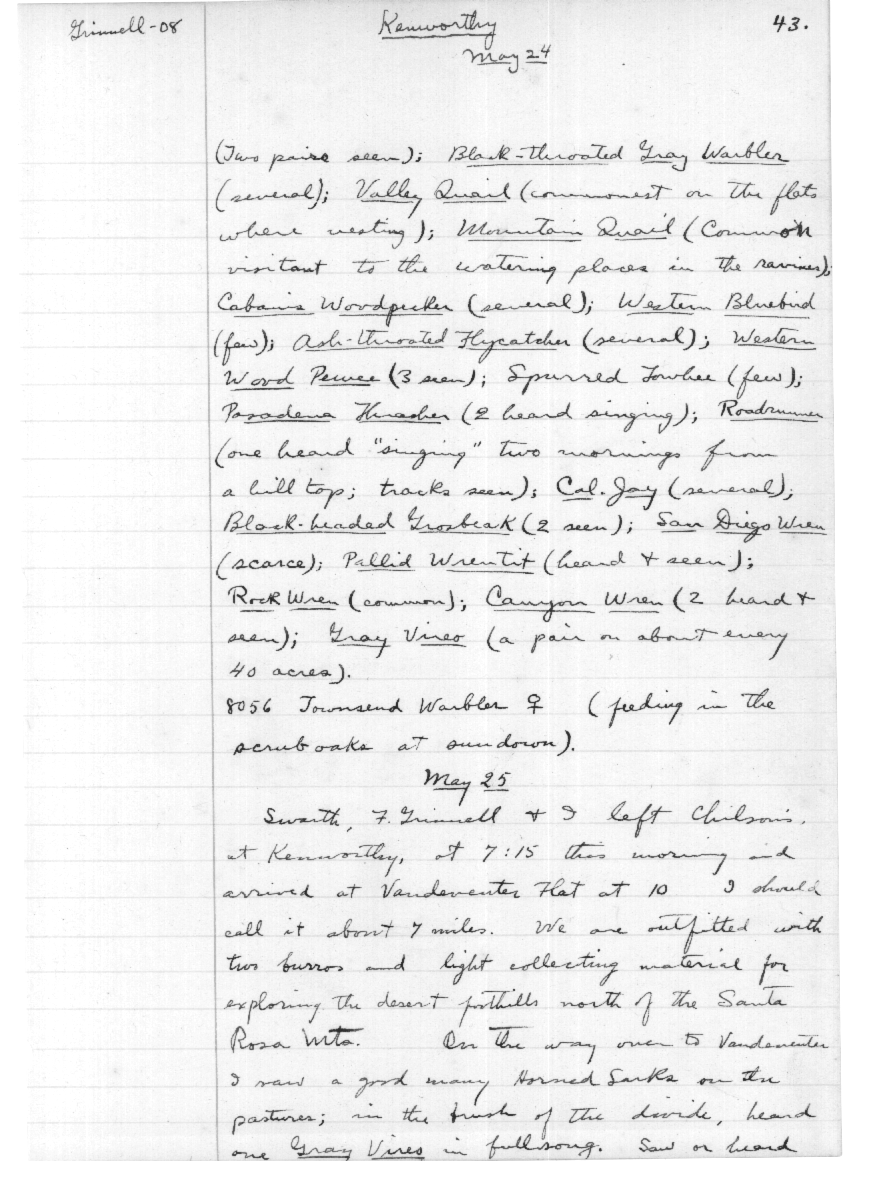 Grinnell-08
Kenworthy
43.
May 24
(Two pairs seen); Black-throated Gray Warbler
(several); Valley Quail (commonest on the flats
where nesting); Mountain Quail (Common
visitant to the watering places in the ravines);
Cabanis Woodpecker (several); Western Bluebird
(few); Ash-throated Flycatcher (several); Western
Wood Pewee (3 seen); Spurred Towhee (few);
Pasadena Thrasher (2 heard singing); Roadrunner
(one heard "singing" two mornings from
a hill top; tracks seen); Cal. Jay (several);
Black-headed Grosbeak (2 seen); San Diego Wren
(scarce); Pallid Wrentit (heard + seen);
Rock Wren (common); Canyon Wren (2 heard +
seen); Gray Vireo (a pair on about every
40 acres).
8056 Townsend Warbler ♀ (feeding in the
scrub oaks at sundown).
May 25
Swarth, F. Grinnell + I left Chilson's,
at Kenworthy, at 7:15 this morning and
arrived at Vandeventer Flat at 10 I should
call it about 7 miles. We are outfitted with
two burros and light collecting material for
exploring the desert foothills north of the Santa
Rosa Mts. On the way over to Vandeventer
I saw a good many Horned Larks on the
pastures; in the brush of the divide, heard
one Gray Vireo in full song. Saw or heard